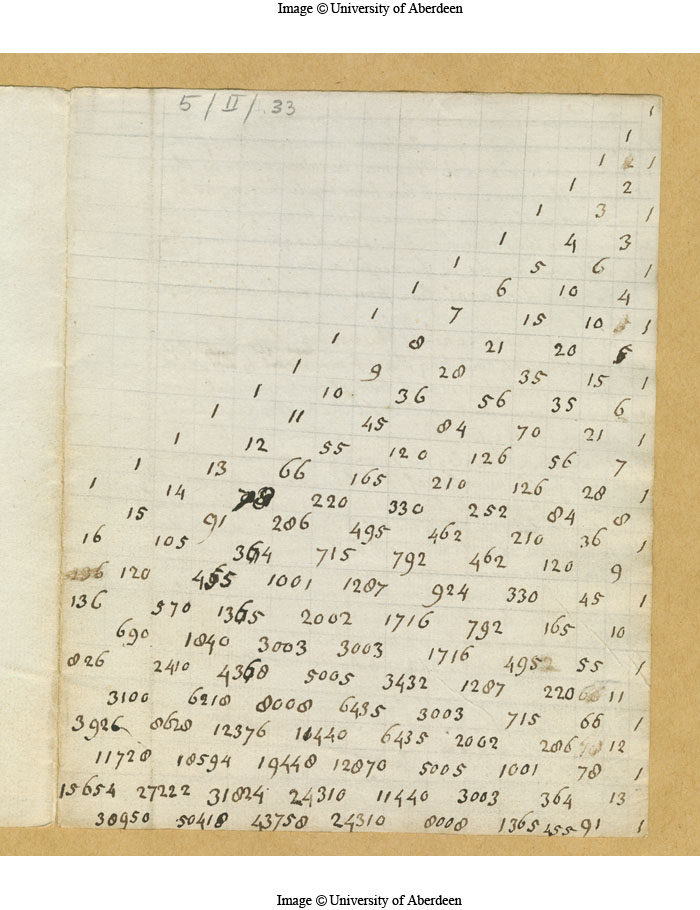 Image © University of Aberdeen
5/II/.33
1
1
1 2 1
1 2
1 3 1
1 4 3
1 5 6 1
1 6 10 4
1 7 15 10 1
1 8 21 20 5
1 9 28 35 15 1
1 10 36 56 35 6
1 11 45 84 70 21 1
1 12 55 120 126 56 7
1 13 66 165 210 126 28 1
1 14 78 220 330 252 84 8
15 91 286 495 462 210 36 1
16 105 364 715 792 462 120 9
136 120 455 1001 1287 924 330 45 1
136 570 1365 2002 1716 792 165 10
690 1840 3003 3003 1716 495 55 1
826 2410 4368 5005 3432 1287 220 11
3100 6218 8008 6435 3003 715 66 1
3926 8628 12376 11440 6435 2002 286 12
11728 18594 19448 12870 5005 1001 78 1
15654 27222 31824 24310 11440 3003 364 13
38950 50418 43758 24310 8008 1365 455 91 1
Image © University of Aberdeen